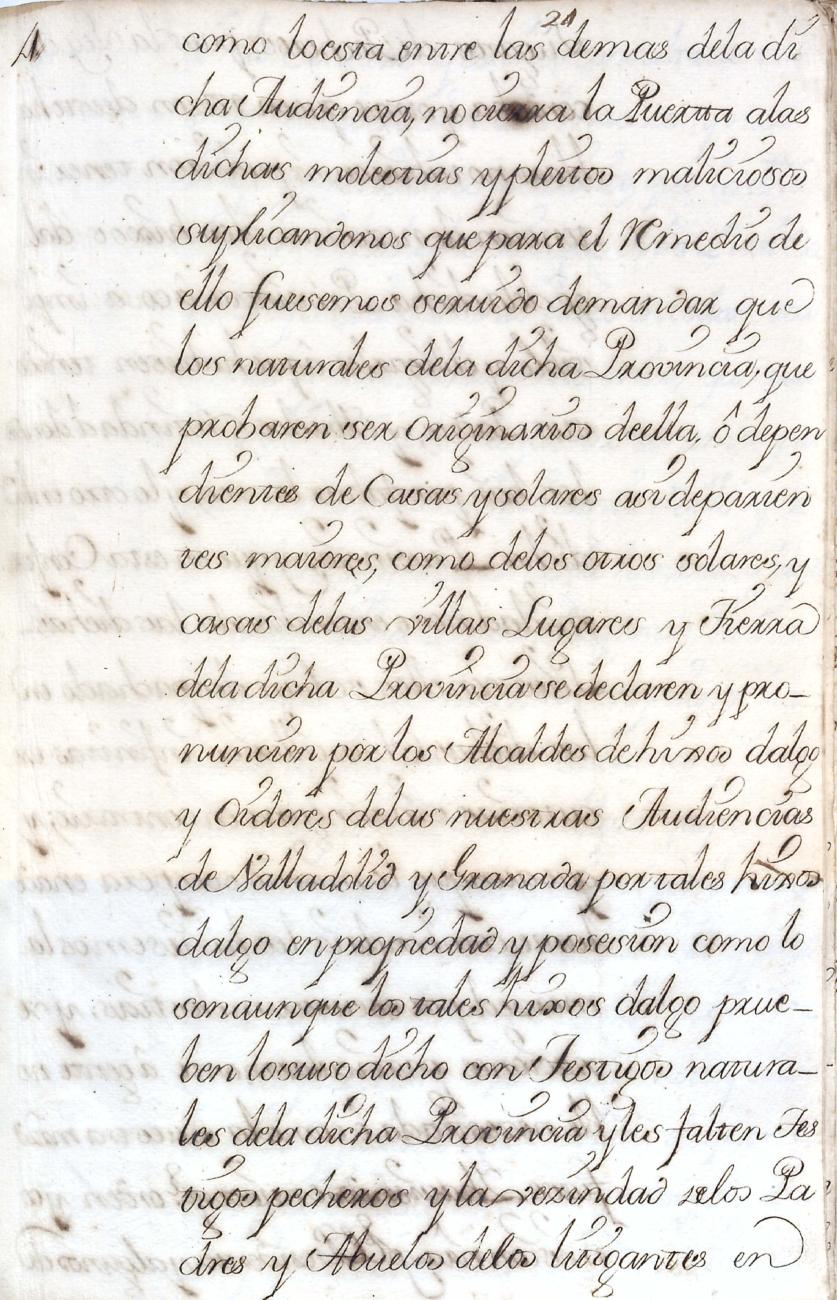 21
4
como loesta entre las demas dela di
cha Audiencia, no cierra la Puertta alas
dichas molestias y pleitos maliciosos
suplicandonos que para el Remedio de
ello fuesemos seruido demandar que
los naturales dela dicha Provincia, que
probaren ser Originarios deella, ô depen
dientes de Casas y solares asi deparien
tes maiores, como delos otros solares, y
casas delas villas Lugares y Tierra
dela dicha Provincia se declaren y pro_
nuncien por los Alcaldes de hixos dalgo
y Oidores delas nuestras Audiencias
de Valladolid y Granada por tales hixos
dalgo en propriedad y posesion como lo
son aunque los tales hixos dalgo prue_
ben losuso dicho con Testigos natura_
les dela dicha Provincia y les falten Tes
tigos pecheros y la vezindad delos Pa
dres y Abuelos delos litigantes en